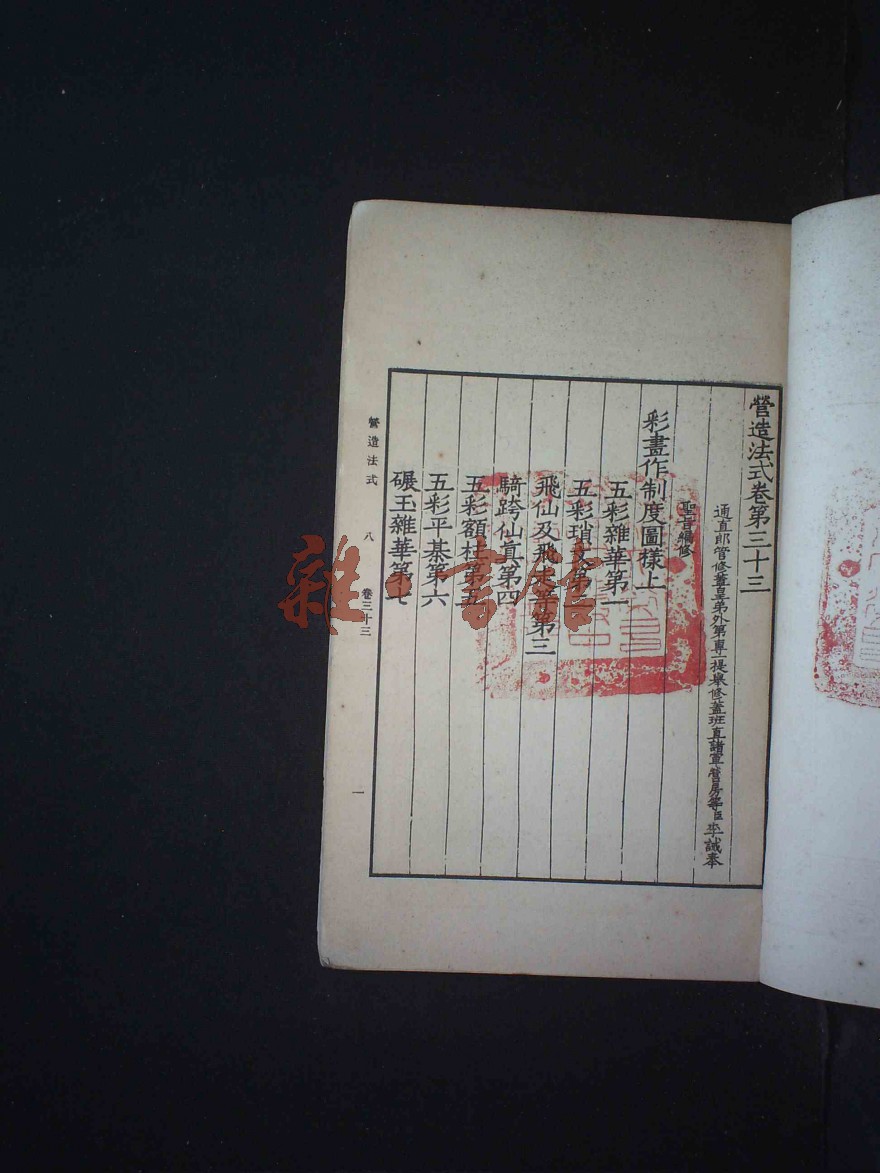 營造法式卷第三十三
通直郎管修蓋皇弟外第專一提舉修蓋班直諸軍營房等臣李誡奉
聖旨編修
彩畫作制度圖樣上
五彩雜華第一
五彩瑣文第二
飛仙及飛走等第三
騎跨仙真第四
五彩額柱第五
五彩平棊第六
碾玉雜華第七
營造法式
八
卷三十三
一
雜·書館